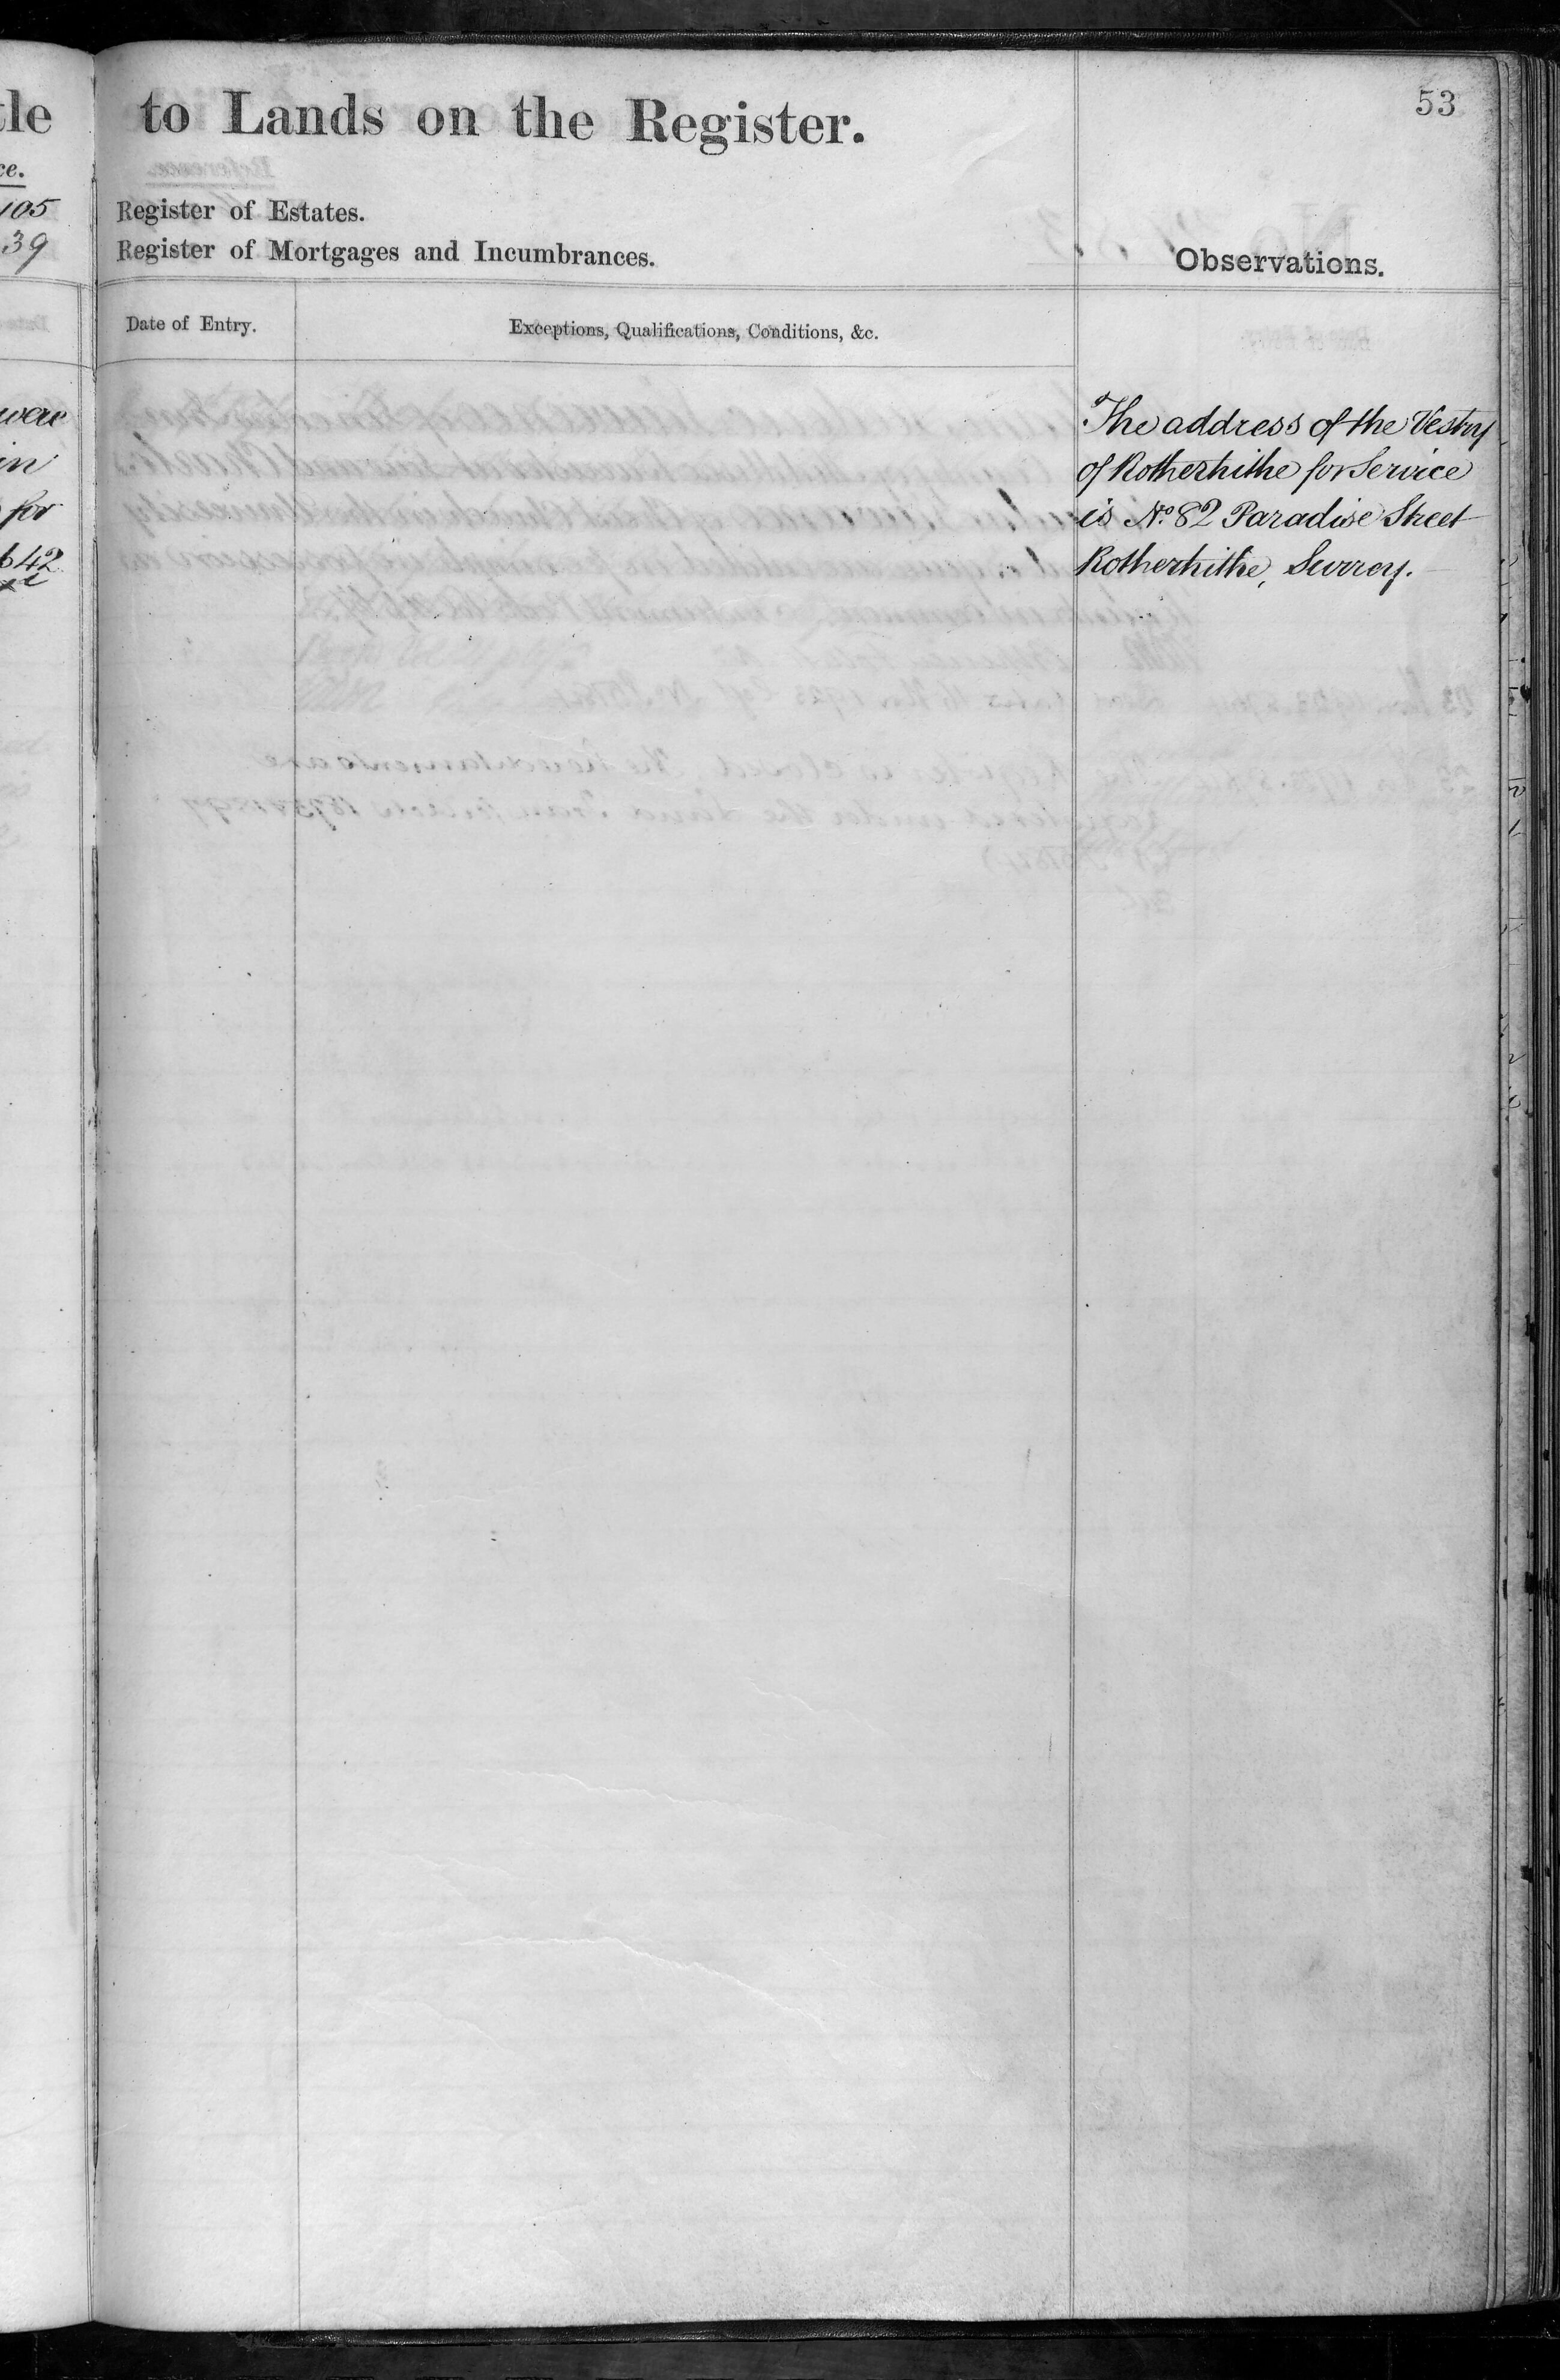 tle
ce.
105
39
were
in
for
642
53
to Lands on the Register.
Register of Estates.
Register of Mortgages and Incumbrances.
Observations.
Date of Entry.
Exceptions, Qualifications, Conditions, &c.
The address of the Vestry
of Rotherhithe for Service
is No. 82 Paradise Street
Rotherhithe, Surrey.